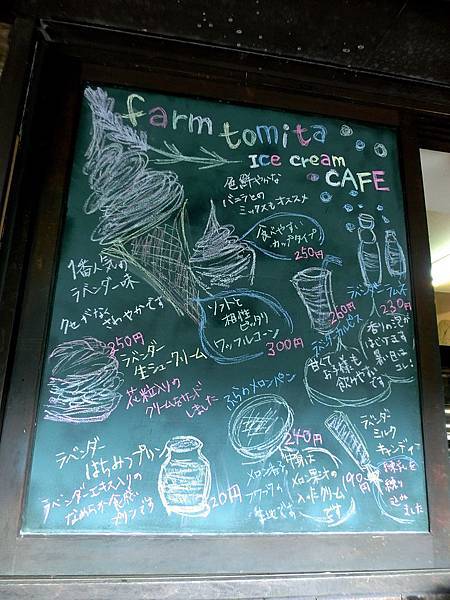 farm tomita
Ice cream
CAFE
色鮮やかな
バニラとの
ミックスもオススメ
食べやすい
カップタイプ
250円
1番人気の
ラベンダー味
クセがなく
さわやかです
250円
ソフトと
相性
ピッタリ
ワッフルコーン
300円
ラベンダーラムネ
230円
260円
ラベンダーカルピス
甘くて
お子様も
飲みやすい
です
香りの泡が
はじけます
暑い日は
コレ!
ラベンダー
生シュークリーム
花粒入りの
クリームをサンド
しました
ふらのメロンパン
240円
メロン果汁入の
クリーム
です
ラベンダー
はちみつプリン
ラベンダーエキス入りの
なめらか食感
プリンです
ラベンダー
ミルク
キャンディー
190円
練乳を
練り
込み
ました